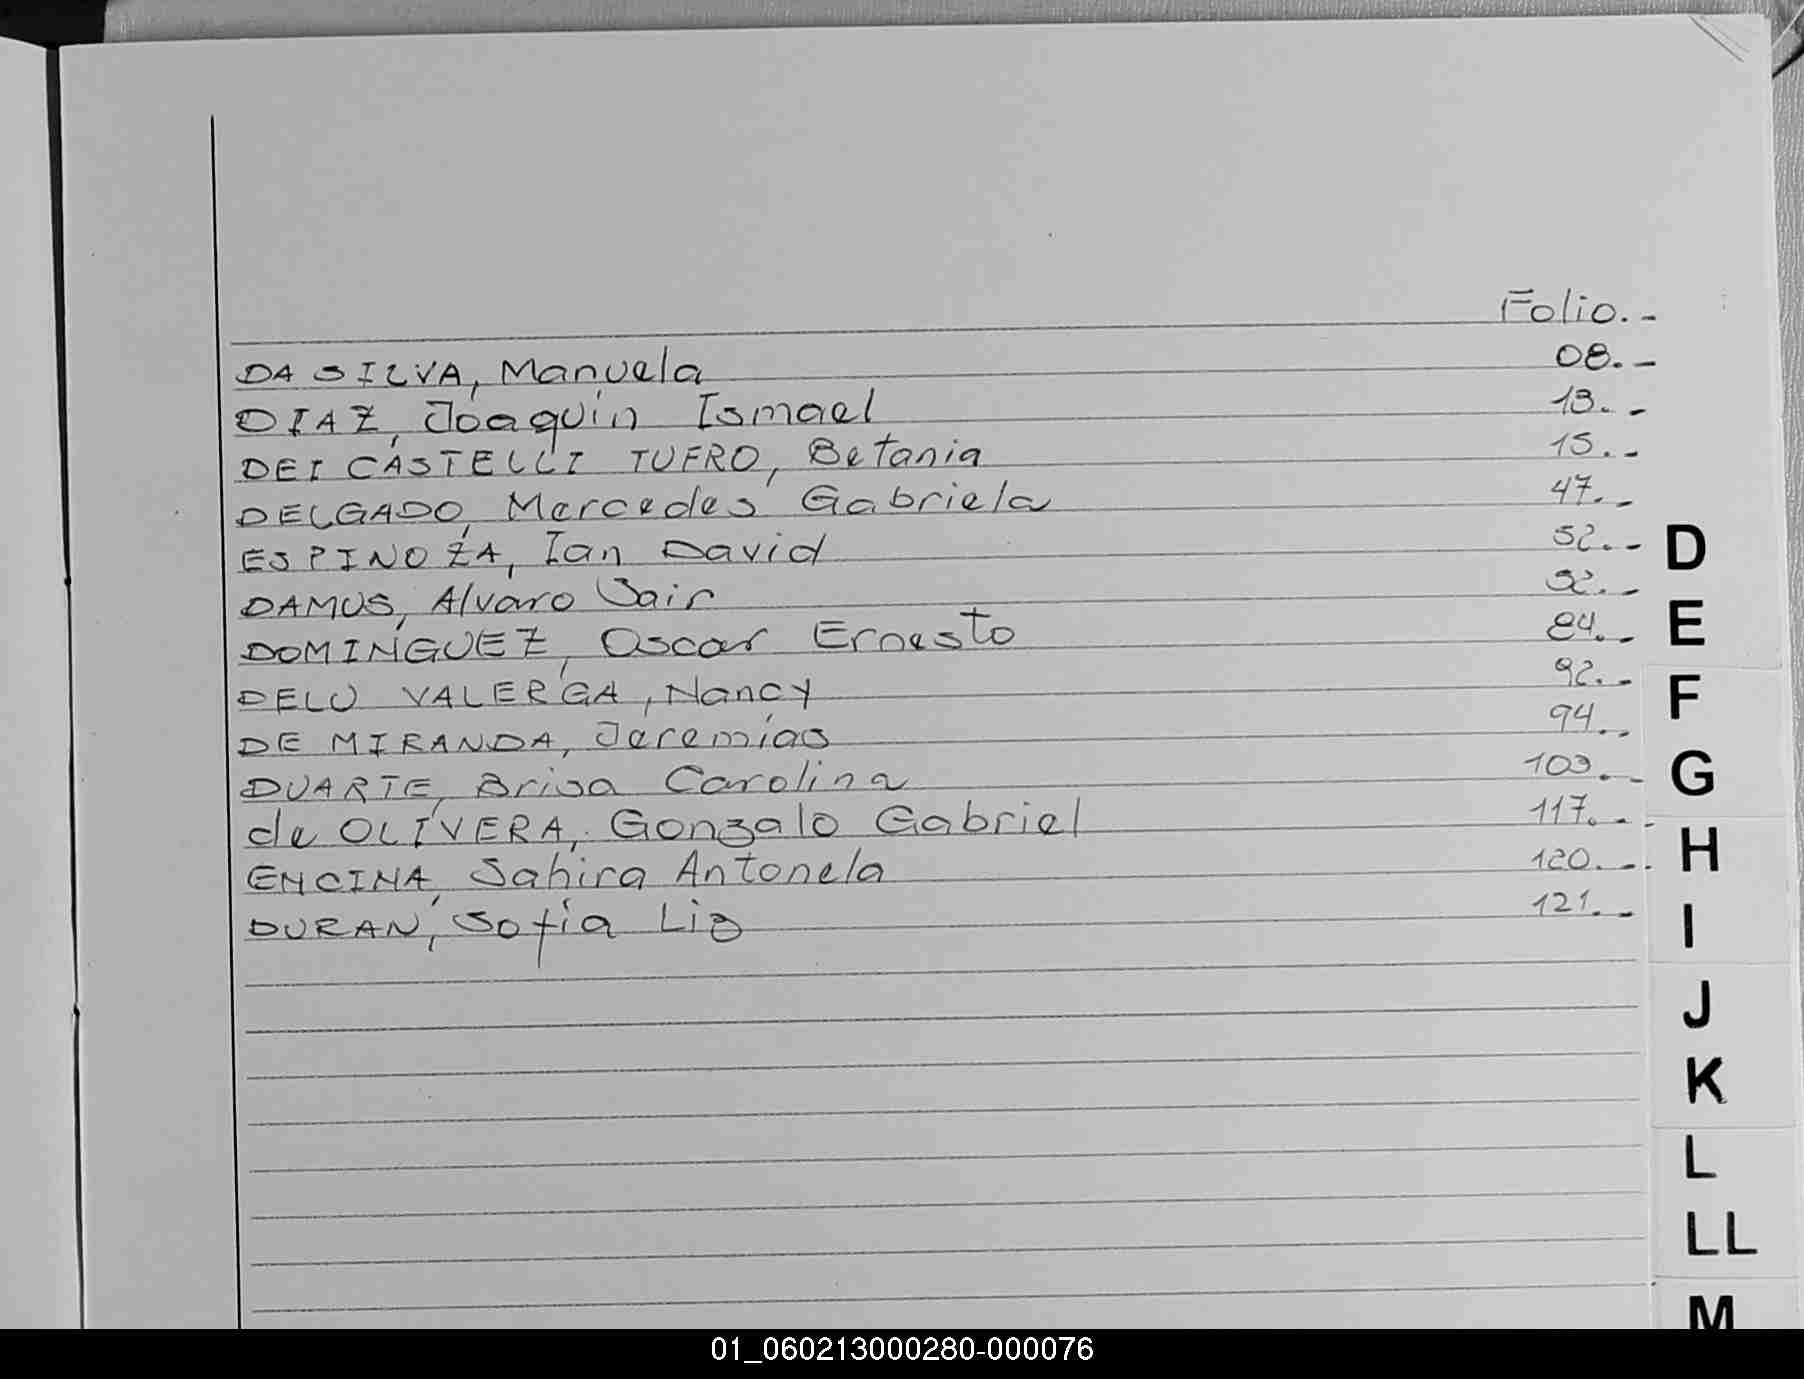 Folio.-
DA SILVA, Manuela 08.-
DIAZ, Joaquín Ismael 13.-
DEI CASTELLI TUFRO, Betania 15.-
DELGADO, Mercedes Gabriela 47.-
ESPINOZA, Ian David 52.-
DAMUS, Alvaro Jair 52.-
DOMINGUEZ, Oscar Ernesto 84.-
DELU VALERGA, Nancy 92.-
DE MIRANDA, Jeremías 94.-
DUARTE, Brisa Carolina 103.-
de OLIVERA, Gonzalo Gabriel 117.-
ENCINA, Sahira Antonela 120.-
DURAN, Sofía Liz 121.-
D
E
F
G
H
I
J
K
L
LL
M
01_060213000280-000076